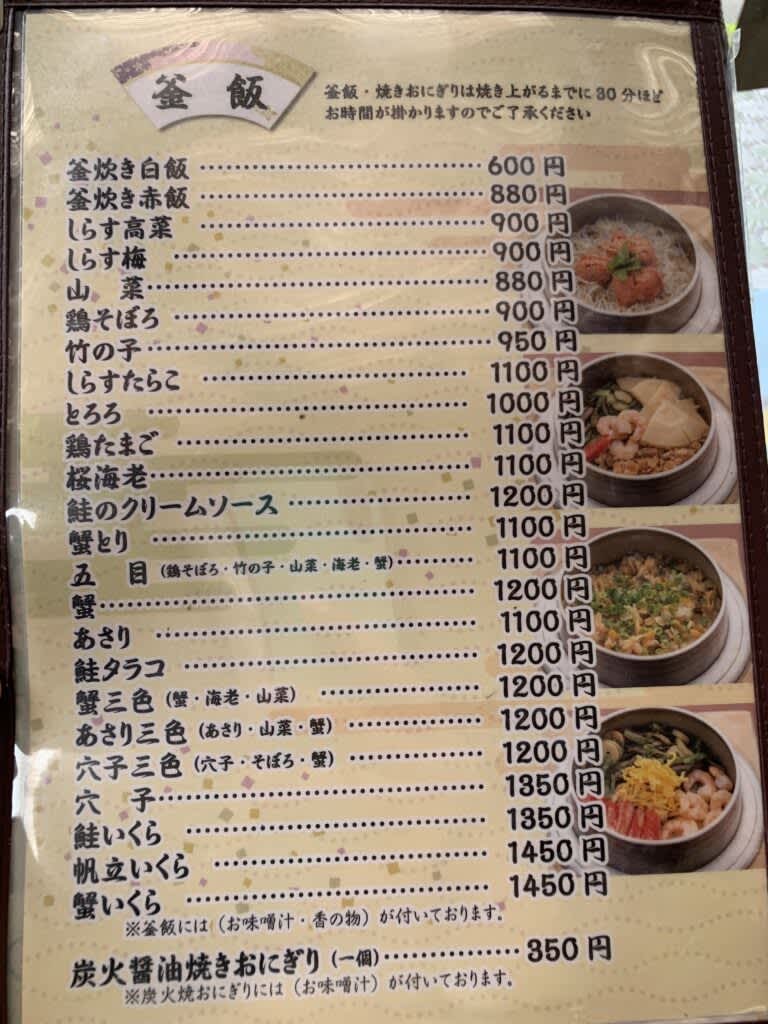 釜飯
釜飯・焼きおにぎりは焼き上がるまでに30分ほど
お時間が掛かりますのでご了承ください
釜炊き白飯 ………………… 600円
釜炊き赤飯 ………………… 880円
しらす高菜 ………………… 900円
しらす梅 ………………… 900円
山　菜 ………………… 880円
鶏そぼろ ………………… 900円
竹の子 ………………… 950円
しらすたらこ ………………… 1100円
とろろ ………………… 1000円
鶏たまご ………………… 1100円
桜海老 ………………… 1100円
鮭のクリームソース ………………… 1200円
蟹とり ………………… 1100円
五　目 (鶏そぼろ・竹の子・山菜・海老・蟹) ……… 1100円
蟹 ………………… 1200円
あさり ………………… 1100円
鮭タラコ ………………… 1200円
蟹三色 (蟹・海老・山菜) ………………… 1200円
あさり三色 (あさり・山菜・蟹) ………………… 1200円
穴子三色 (穴子・そぼろ・蟹) ………………… 1200円
穴　子 ………………… 1350円
鮭いくら ………………… 1350円
帆立いくら ………………… 1450円
蟹いくら ………………… 1450円
※釜飯には（お味噌汁・香の物）が付いております。
炭火醤油焼きおにぎり (一個) ……………… 350円
※炭火焼おにぎりには（お味噌汁）が付いております。